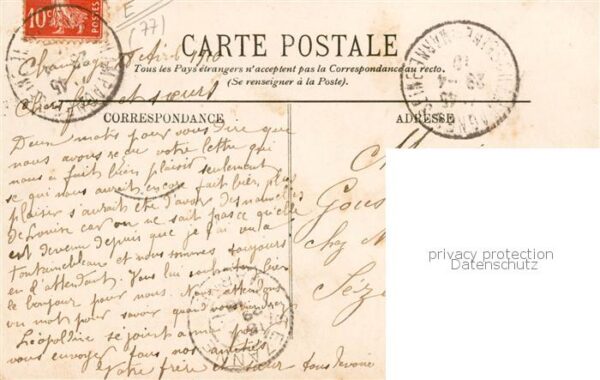 10c
POSTES
E
(77)
CARTE POSTALE
Tous les Pays étrangers n'acceptent pas la Correspondance au recto.
(Se renseigner à la Poste).
CORRESPONDANCE
ADRESSE
Avril 1910
Cher frère et sœur
Deux mots pour vous dire que
nous avons reçu votre lettre qui
nous a fait bien plaisir seulement
se qui nous aurait encore fait bien plus
plaisir s'aurait été d'avoir des nouvelles
de Louise car on ne sait pas ce qu'elle
est devenu depuis que je l'ai vu à
Fontainebleau et nous sommes toujours
en l'attendant. Vous lui souhaiterez bien
le bonjour pour nous. Nous attendons
un mot pour savoir quand vous viendrez
Léopoldine se joint à moi pour
vous envoyer tous nos amitiés
Votre frère et sœur tous dévoués
chez M
Séz
privacy protection
Datenschutz